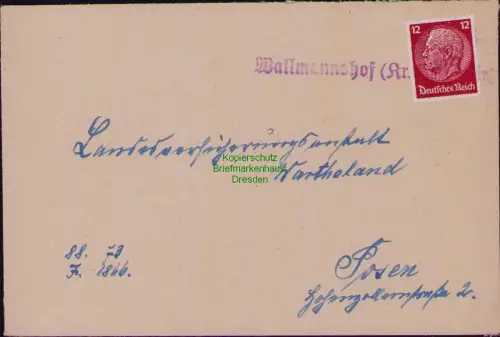 12 12
Deutsches Reich
Wallmannshof (Kr.
Landesversicherungsanstalt
Wartheland
Kopierschutz
Briefmarkenhaus
Dresden
Posen
Hohenzollernstraße 2.
88.
F. 1866.